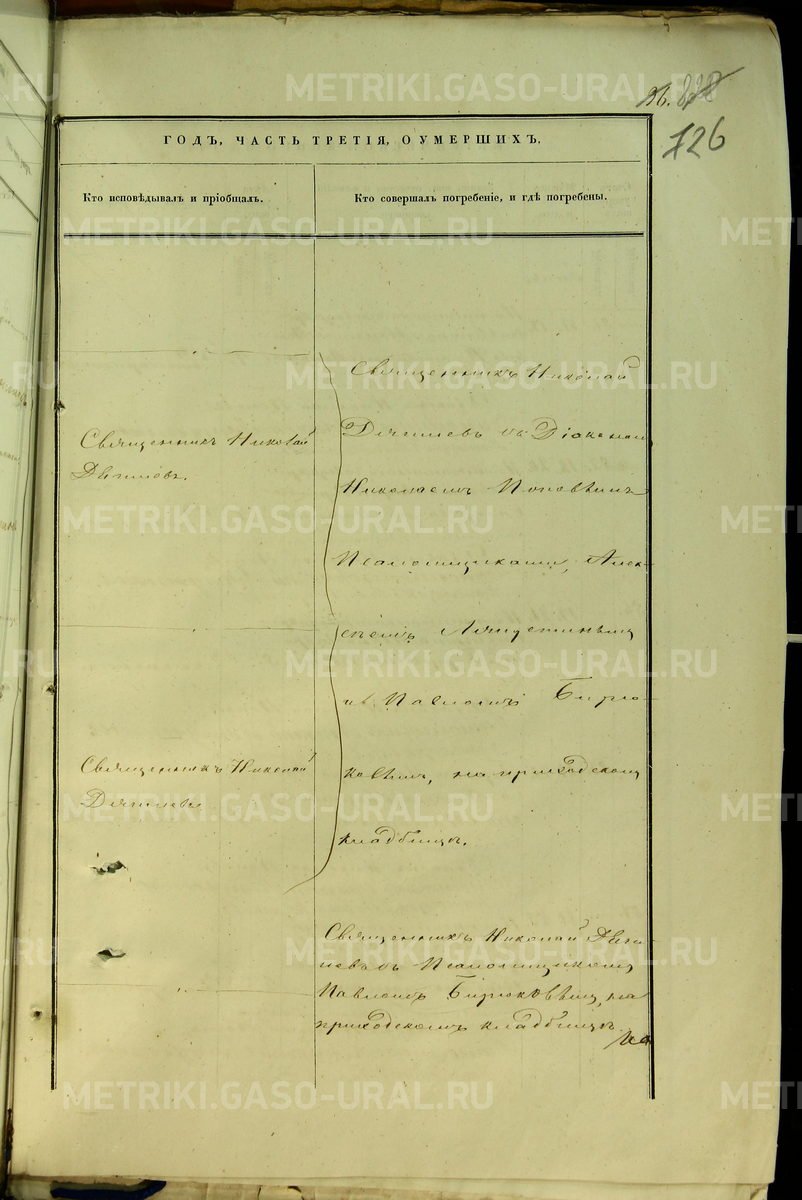 26.
126
ГОДЪ, ЧАСТЬ ТРЕТІЯ, О УМЕРШИХЪ,
Кто исповѣдывалъ и пріобщалъ.
Кто совершалъ погребеніе, и гдѣ погребены.
Священникъ Николай
Священникъ Николай
Діаконом
Николаемъ Поповымъ
Псаломщиками, Алек-
сѣемъ
и Павломъ Бирю-
ковым, на приходскомъ
кладбищѣ.
Священникъ Николай
Священникъ Николай
Псаломщикомъ
Павломъ Бирюковым, на
приходскомъ кладбищѣ.
METRIKI.GASO-URAL.RU